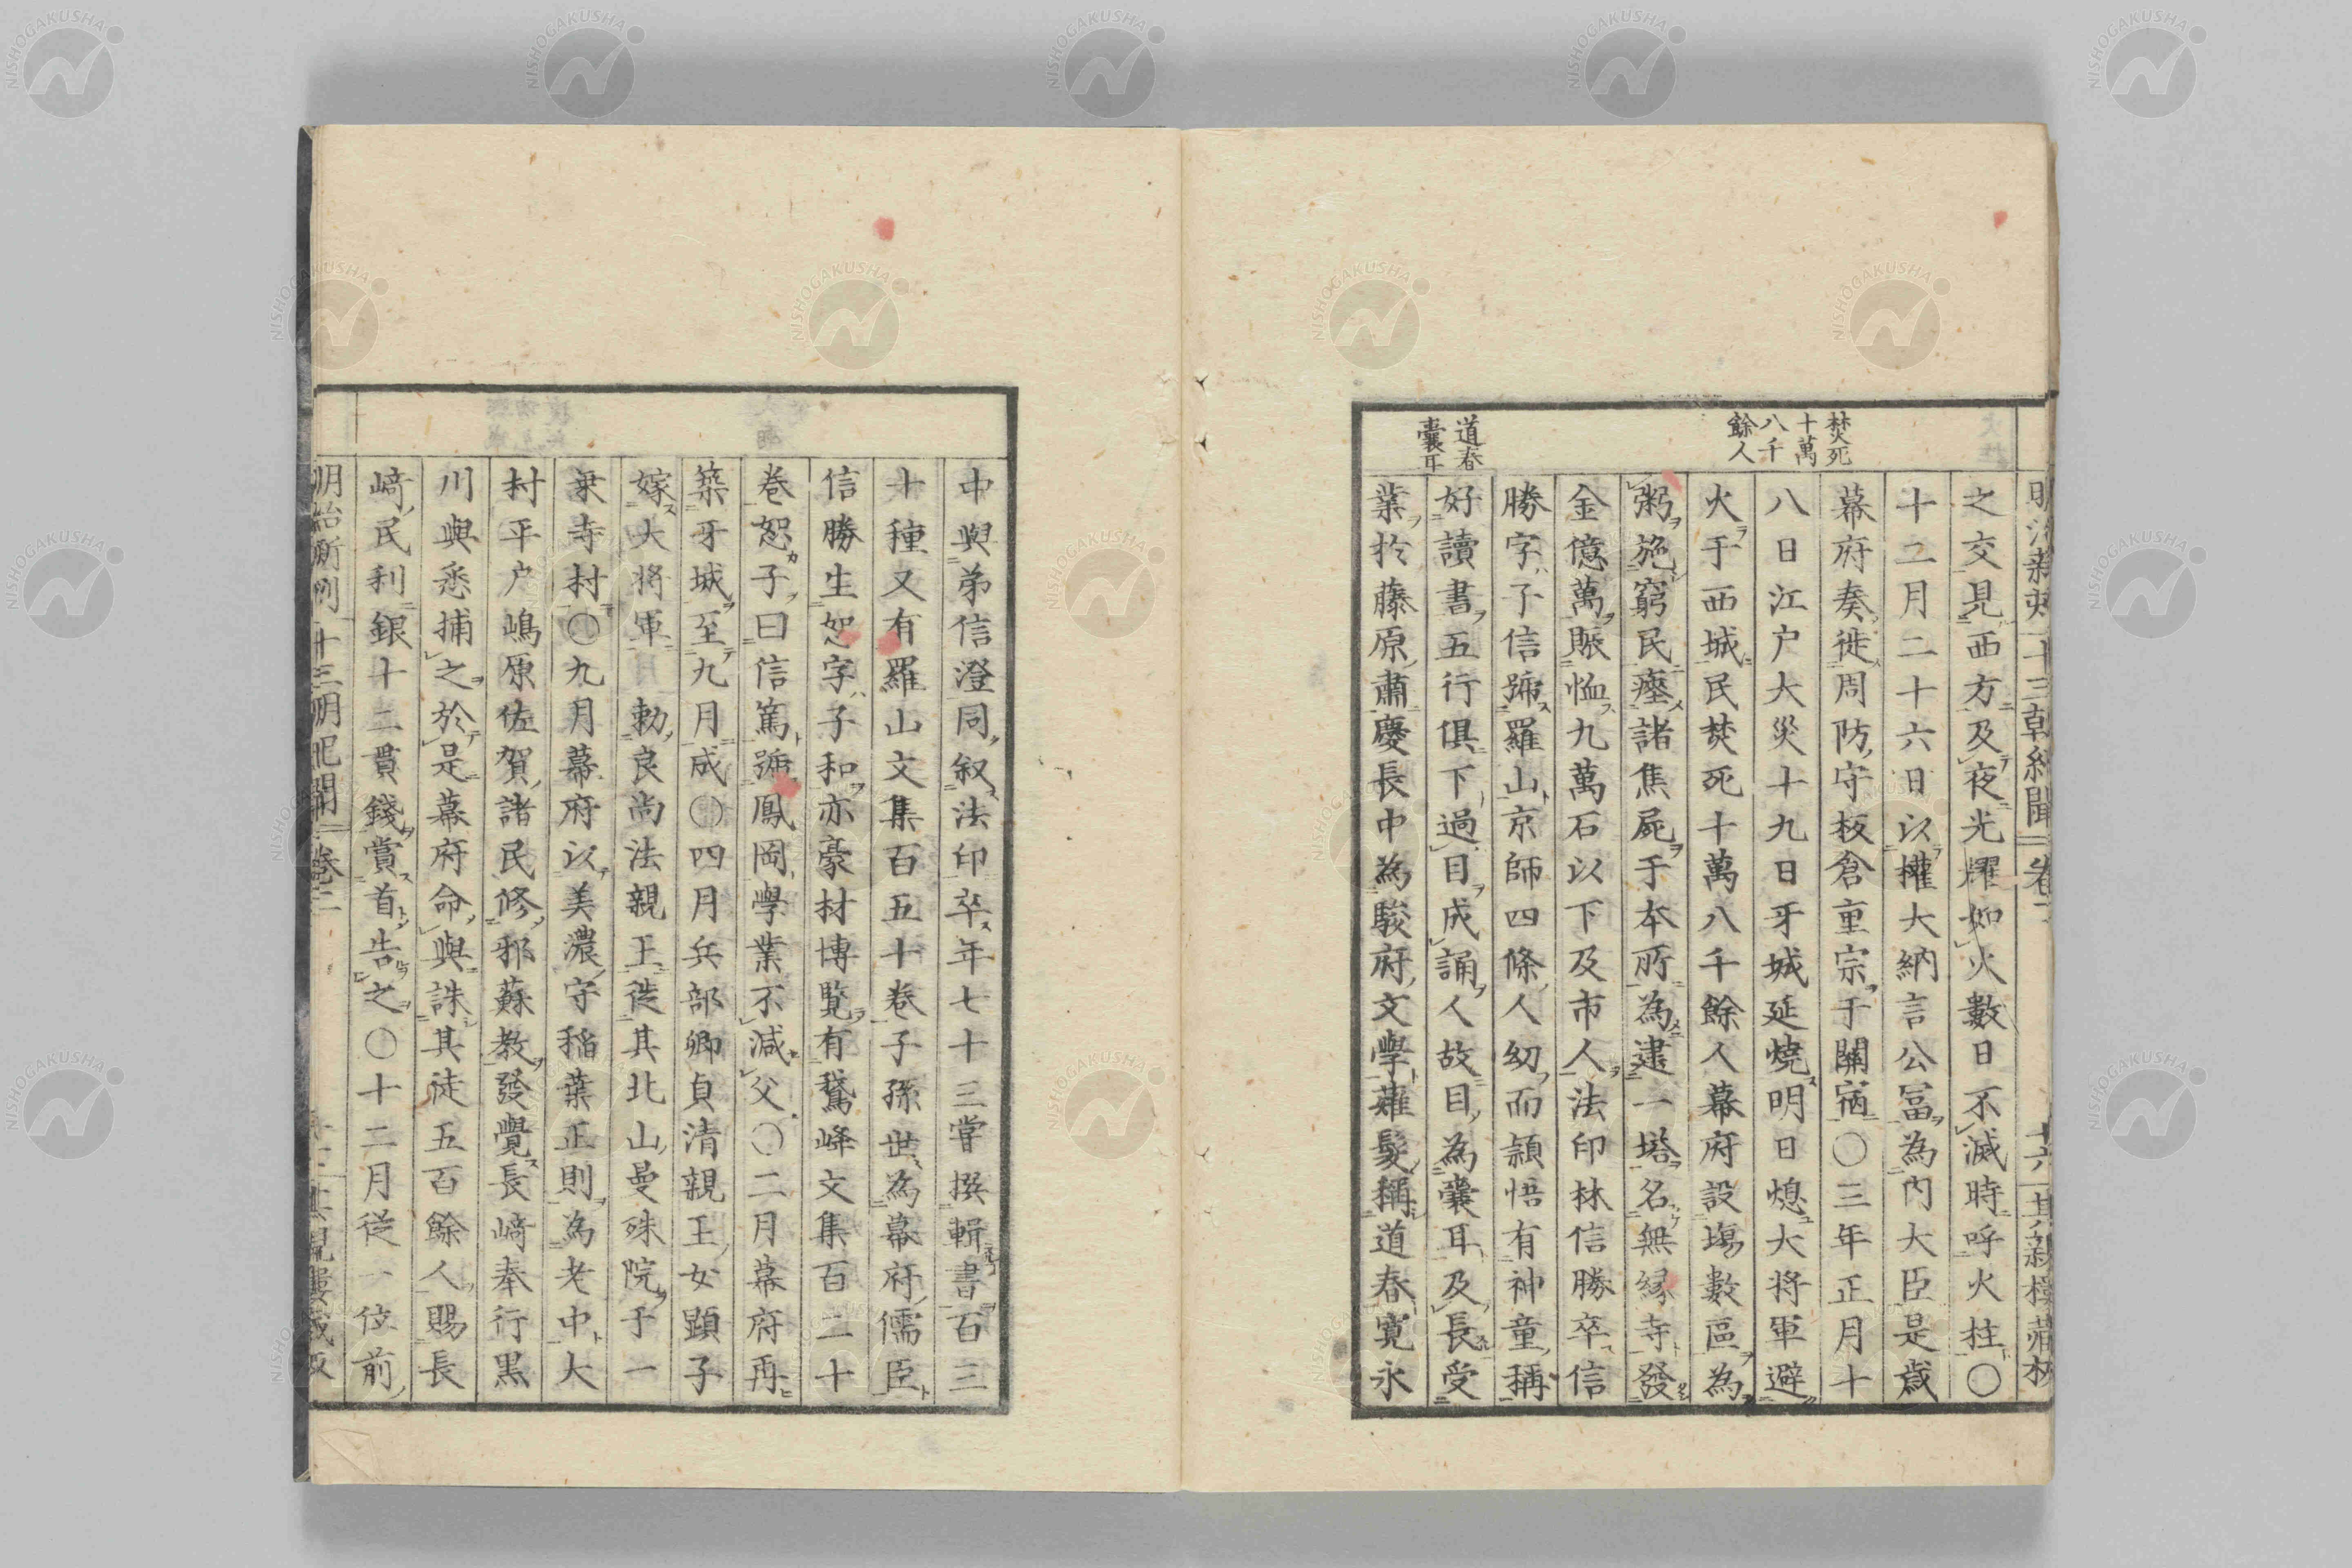 焚死
十萬
八千
餘人
道春
囊耳
之交見西方及夜光燿如火數日不滅時呼火柱〇
十二月二十六日以權大納言公冨為内大臣是歳
幕府奏徙周防守板倉重宗于關宿〇三年正月十
八日江戸大災十九日牙城延燒明日熄大将軍避
火于西城民焚死十萬八千餘人幕府設塲數區為
粥施窮民瘞諸焦屍于本所為建一塔名無縁寺發
金億萬賑恤九萬石以下及市人法印林信勝卒信
勝字子信號羅山京師四條人幼而頴悟有神童稱
好讀書五行俱下過目成誦人故目為囊耳及長受
業於藤原肅慶長中為駿府文學薙髮稱道春寛永
中與弟信澄同叙法印卒年七十三嘗撰輯書百三
十種又有羅山文集百五十巻子孫世為幕府儒臣
信勝生恕字子和亦豪材博覧有鵞峰文集百二十
巻恕子曰信篤號鳳岡學業不減父〇二月幕府再
築牙城至九月成〇四月兵部卿貞清親王女顕子
嫁大将軍月勅良尚法親王徙其北山曼殊院于一
乗寺村〇九月幕府以美濃守稲葉正則為老中大
村平户嶋原佐賀諸民修邪蘇教發覺長﨑奉行黒
川與悉捕之於是幕府命與誅其徒五百餘人賜長
﨑民利銀十二貫錢賞首告之〇十二月従一位前